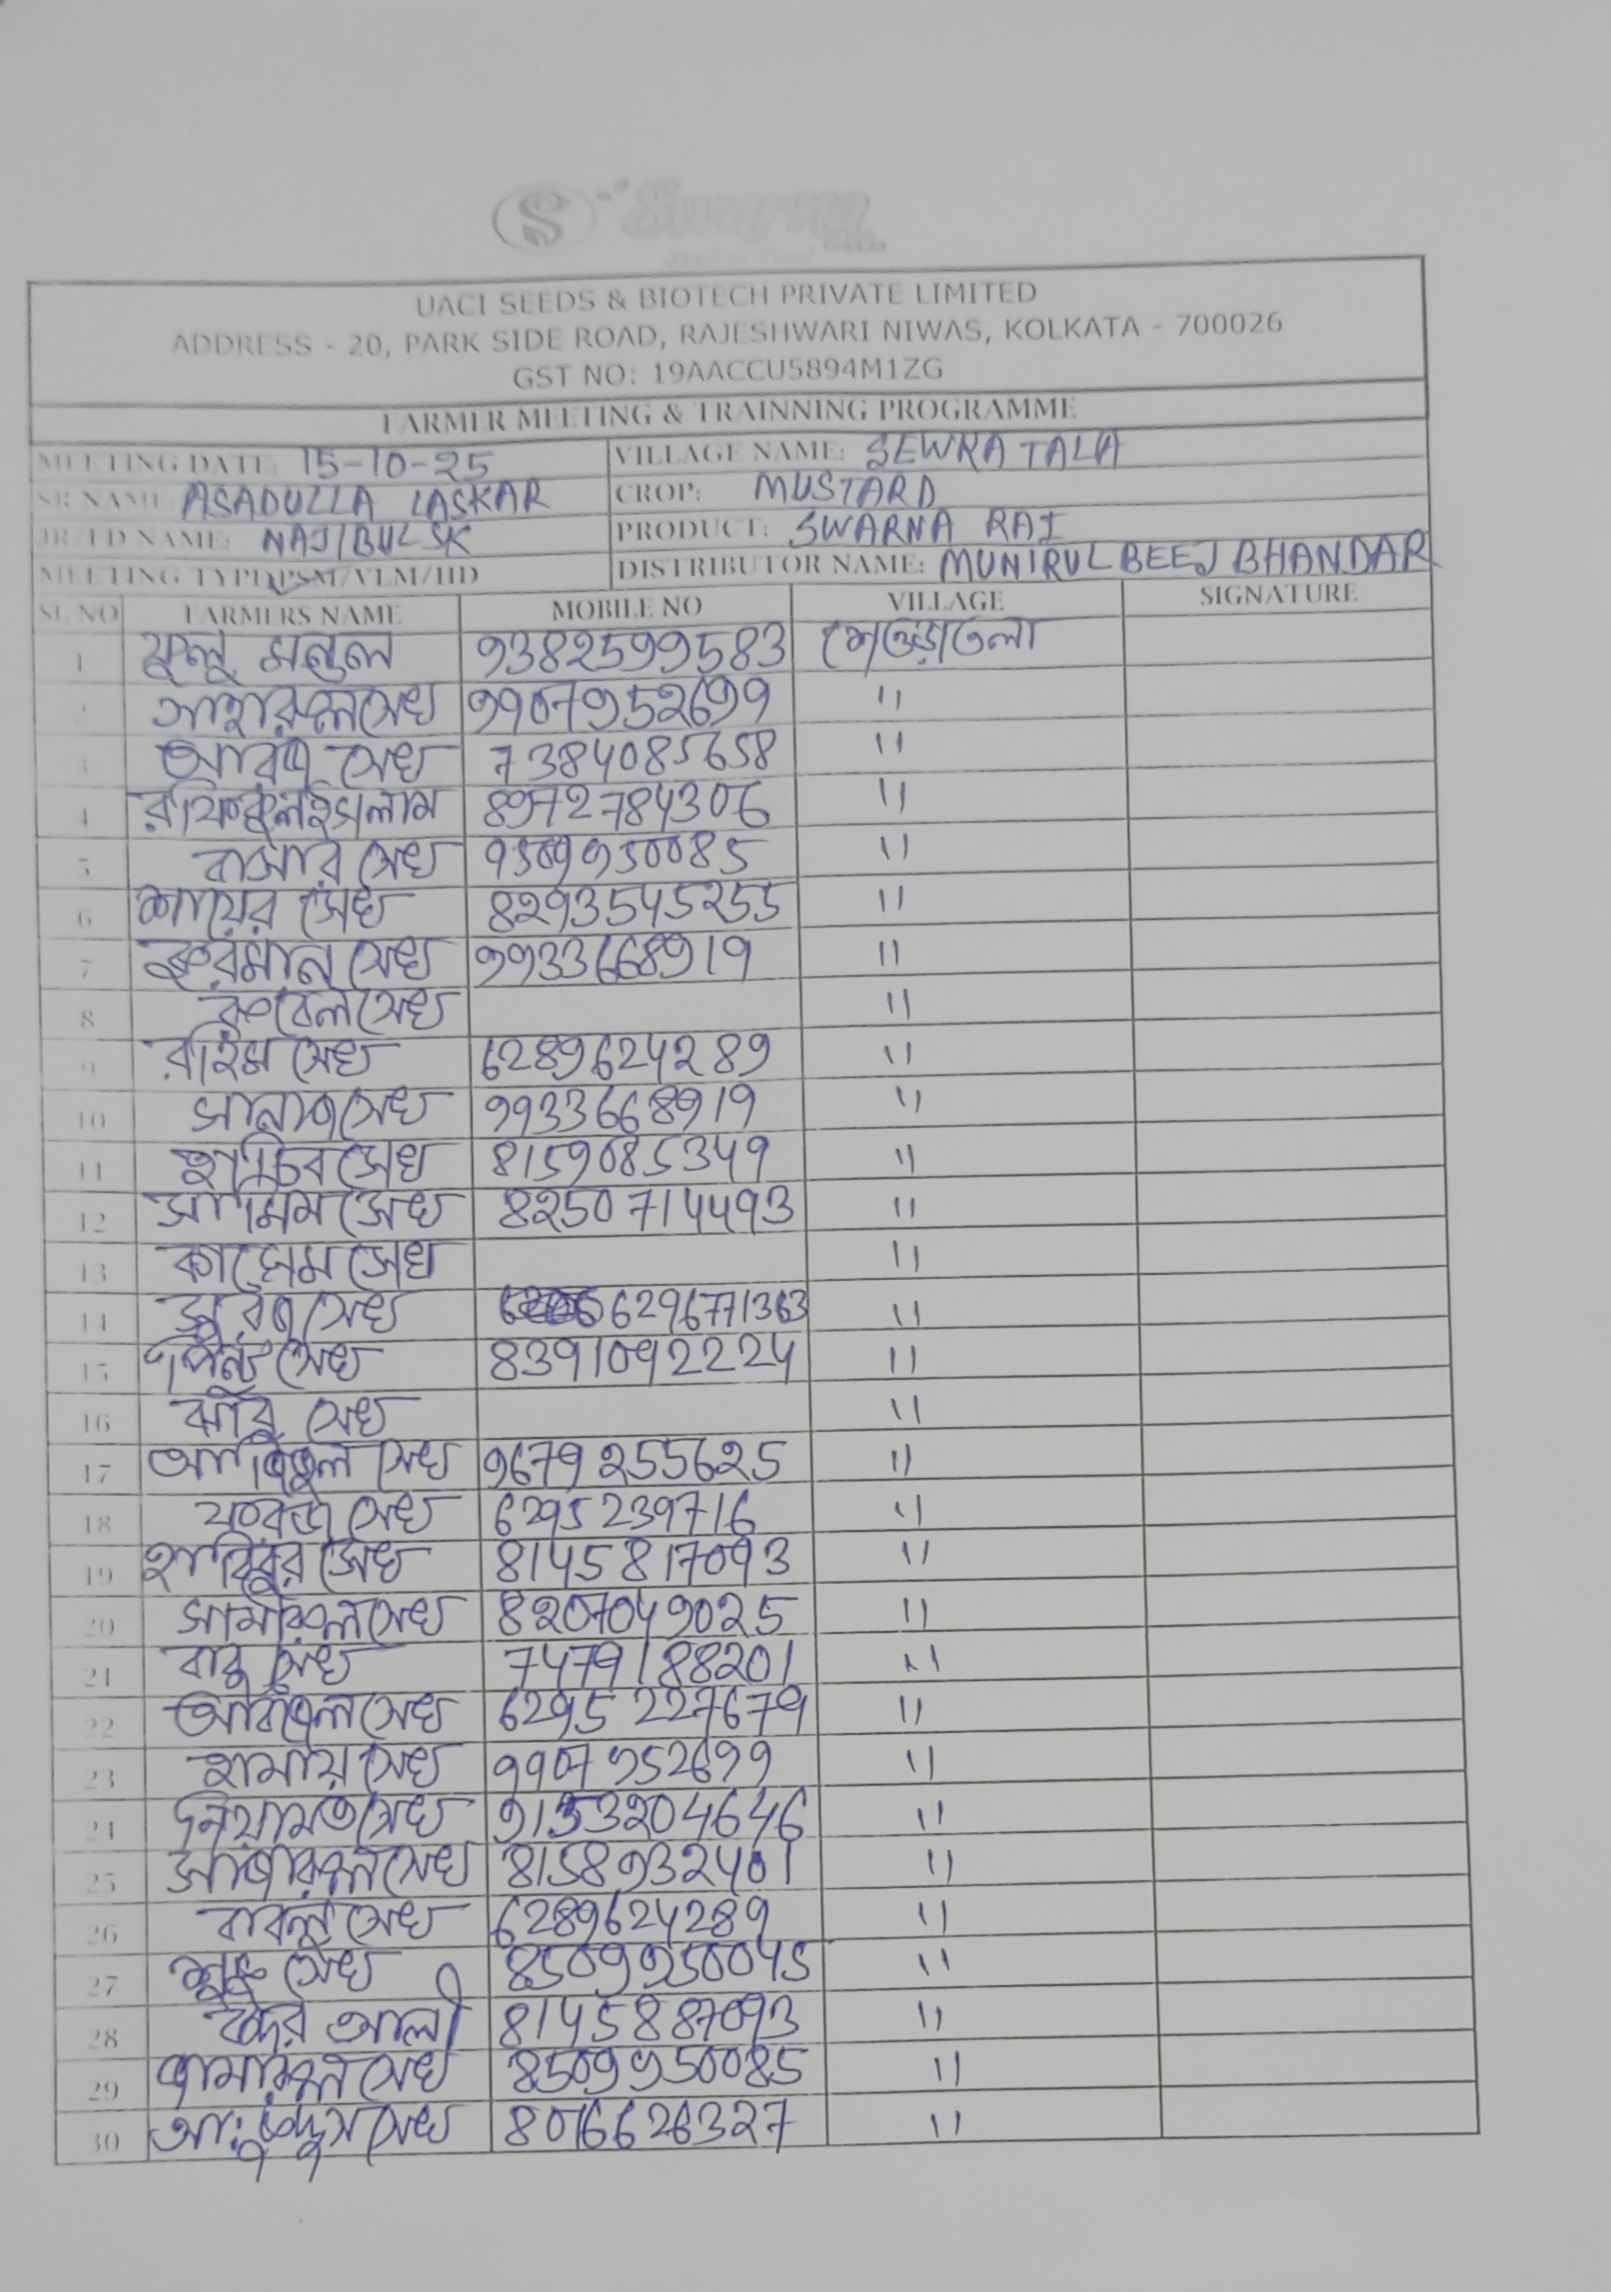 S Swarna
UACI SEEDS & BIOTECH PRIVATE LIMITED
ADDRESS - 20, PARK SIDE ROAD, RAJESHWARI NIWAS, KOLKATA - 700026
GST NO: 19AACCU5894M1ZG
FARMER MEETING & TRAINNING PROGRAMME
MEETING DATE: 15-10-25 VILLAGE NAME: SEWRA TALA
SR NAME: ASADULLA LASKAR CROP: MUSTARD
JR/FD NAME: NAJIBUL SK PRODUCT: SWARNA RAI
MEETING TYPE: PSM/VLM/HD DISTRIBUTOR NAME: MUNIRUL BEEJ BHANDAR
SL NO FARMERS NAME MOBILE NO VILLAGE SIGNATURE
1 ফুলু মন্ডল 9382599583 শেওড়াতলা
2 সেখ 9907952699 "
3 সেখ 7384085658 "
4 রফিকুল ইসলাম 8972784306 "
5 বাসার সেখ "
6 শায়ের সেখ 8293545255 "
7 সেখ 9933668919 "
8 রুবেল সেখ "
9 রহিম সেখ 6289624289 "
10 সেখ 9933668919 "
11 সেখ 8159085349 "
12 সামিম সেখ 8250714493 "
13 কাসেম সেখ "
14 সেখ 6296771363 "
15 পিন্টু সেখ 8391092224 "
16 সেখ "
17 সেখ 9679255625 "
18 সেখ 6295239716 "
19 হাবিবুর সেখ 8145817093 "
20 সামিরুল সেখ 8207049025 "
21 বাবু সেখ 7479188201 "
22 সেখ 6295227679 "
23 সেখ 9907952699 "
24 নিয়ামত সেখ "
25 সেখ 8158932401 "
26 বাবলু সেখ 6289624289 "
27 সেখ 8509950045 "
28 বদর আলী 8145887093 "
29 সেখ 8509950085 "
30 সেখ "